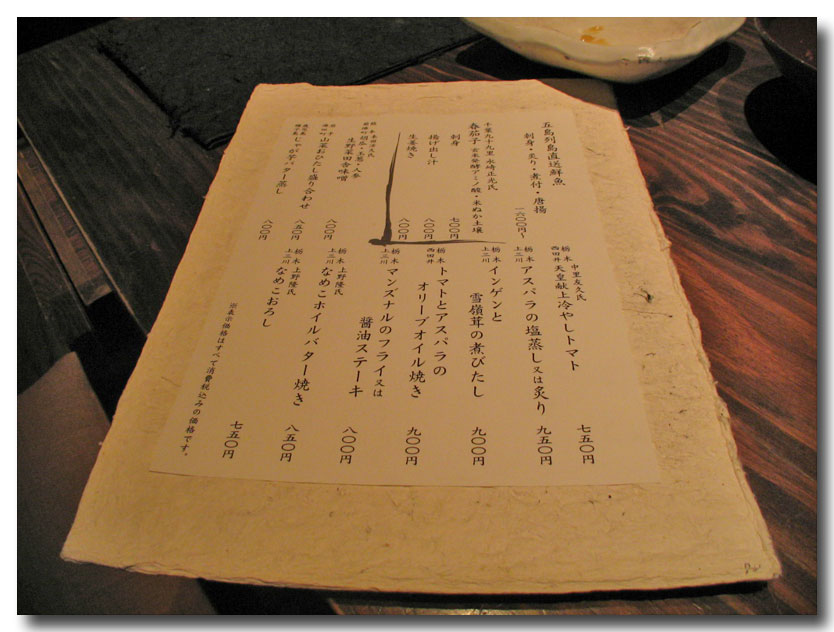 五島列島直送鮮魚
刺身・炙り・煮付・唐揚
一六〇〇円〜
千葉九十九里 永崎正光氏
春茄子 玄米発酵アミノ酸・米ぬか土壌
刺身
七〇〇円
揚げ出し汁
八〇〇円
生姜焼き
八〇〇円
生野菜田舎味噌
八〇〇円
山菜おひたし盛り合わせ
八五〇円
じゃが芋バター蒸し
八〇〇円
中里友久氏
栃木 西田井 天皇献上冷やしトマト
七五〇円
栃木 上三川 アスパラの塩蒸し又は炙り
九五〇円
栃木 上三川 インゲンと
雪嶺茸の煮びたし
九〇〇円
栃木 西田井 トマトとアスパラの
オリーブオイル焼き
九〇〇円
栃木 上三川 マンズナルのフライ又は
醤油ステーキ
八〇〇円
栃木 上三川 上野隆氏
なめこホイルバター焼き
八五〇円
栃木 上三川 上野隆氏
なめこおろし
七五〇円
※表示価格はすべて消費税込みの価格です。